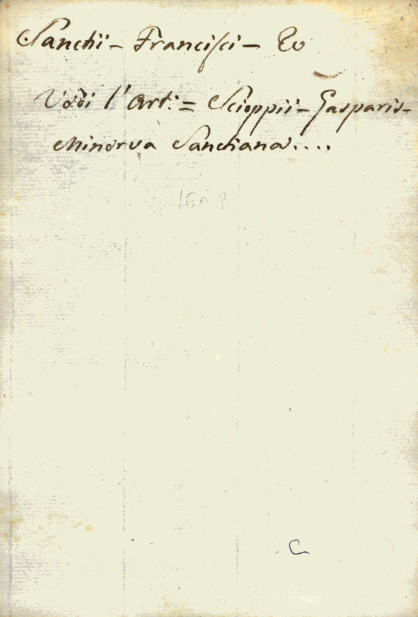 Sanctii - Francisci - Ev
Vedi l'Art: = Scioppii - Gasparis -
Minerva Sanctiana....
C